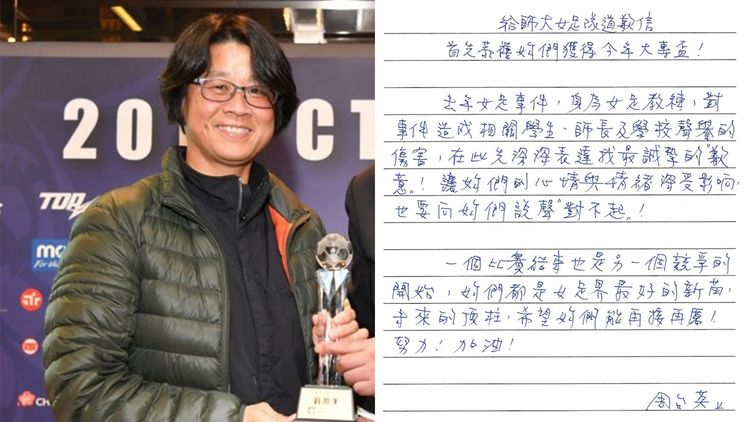 20 CT
TOP
For the
CH
給師大女足隊道歉信
首先恭禧妳們獲得今年大專盃！
去年女足事件，身為女足教練，對
事件造成相關學生、師長及學校聲譽的
傷害，在此先深深表達我最誠摯的"歉
意"！讓妳們的心情與情緒深受影响，
也要向妳們說聲"對不起"！
一個比賽結束也是另一個競爭的
開始，妳們都是女足界最好的新苗，
未來的頂柱，希望妳們能再接再厲！
努力！加油！
周台英上